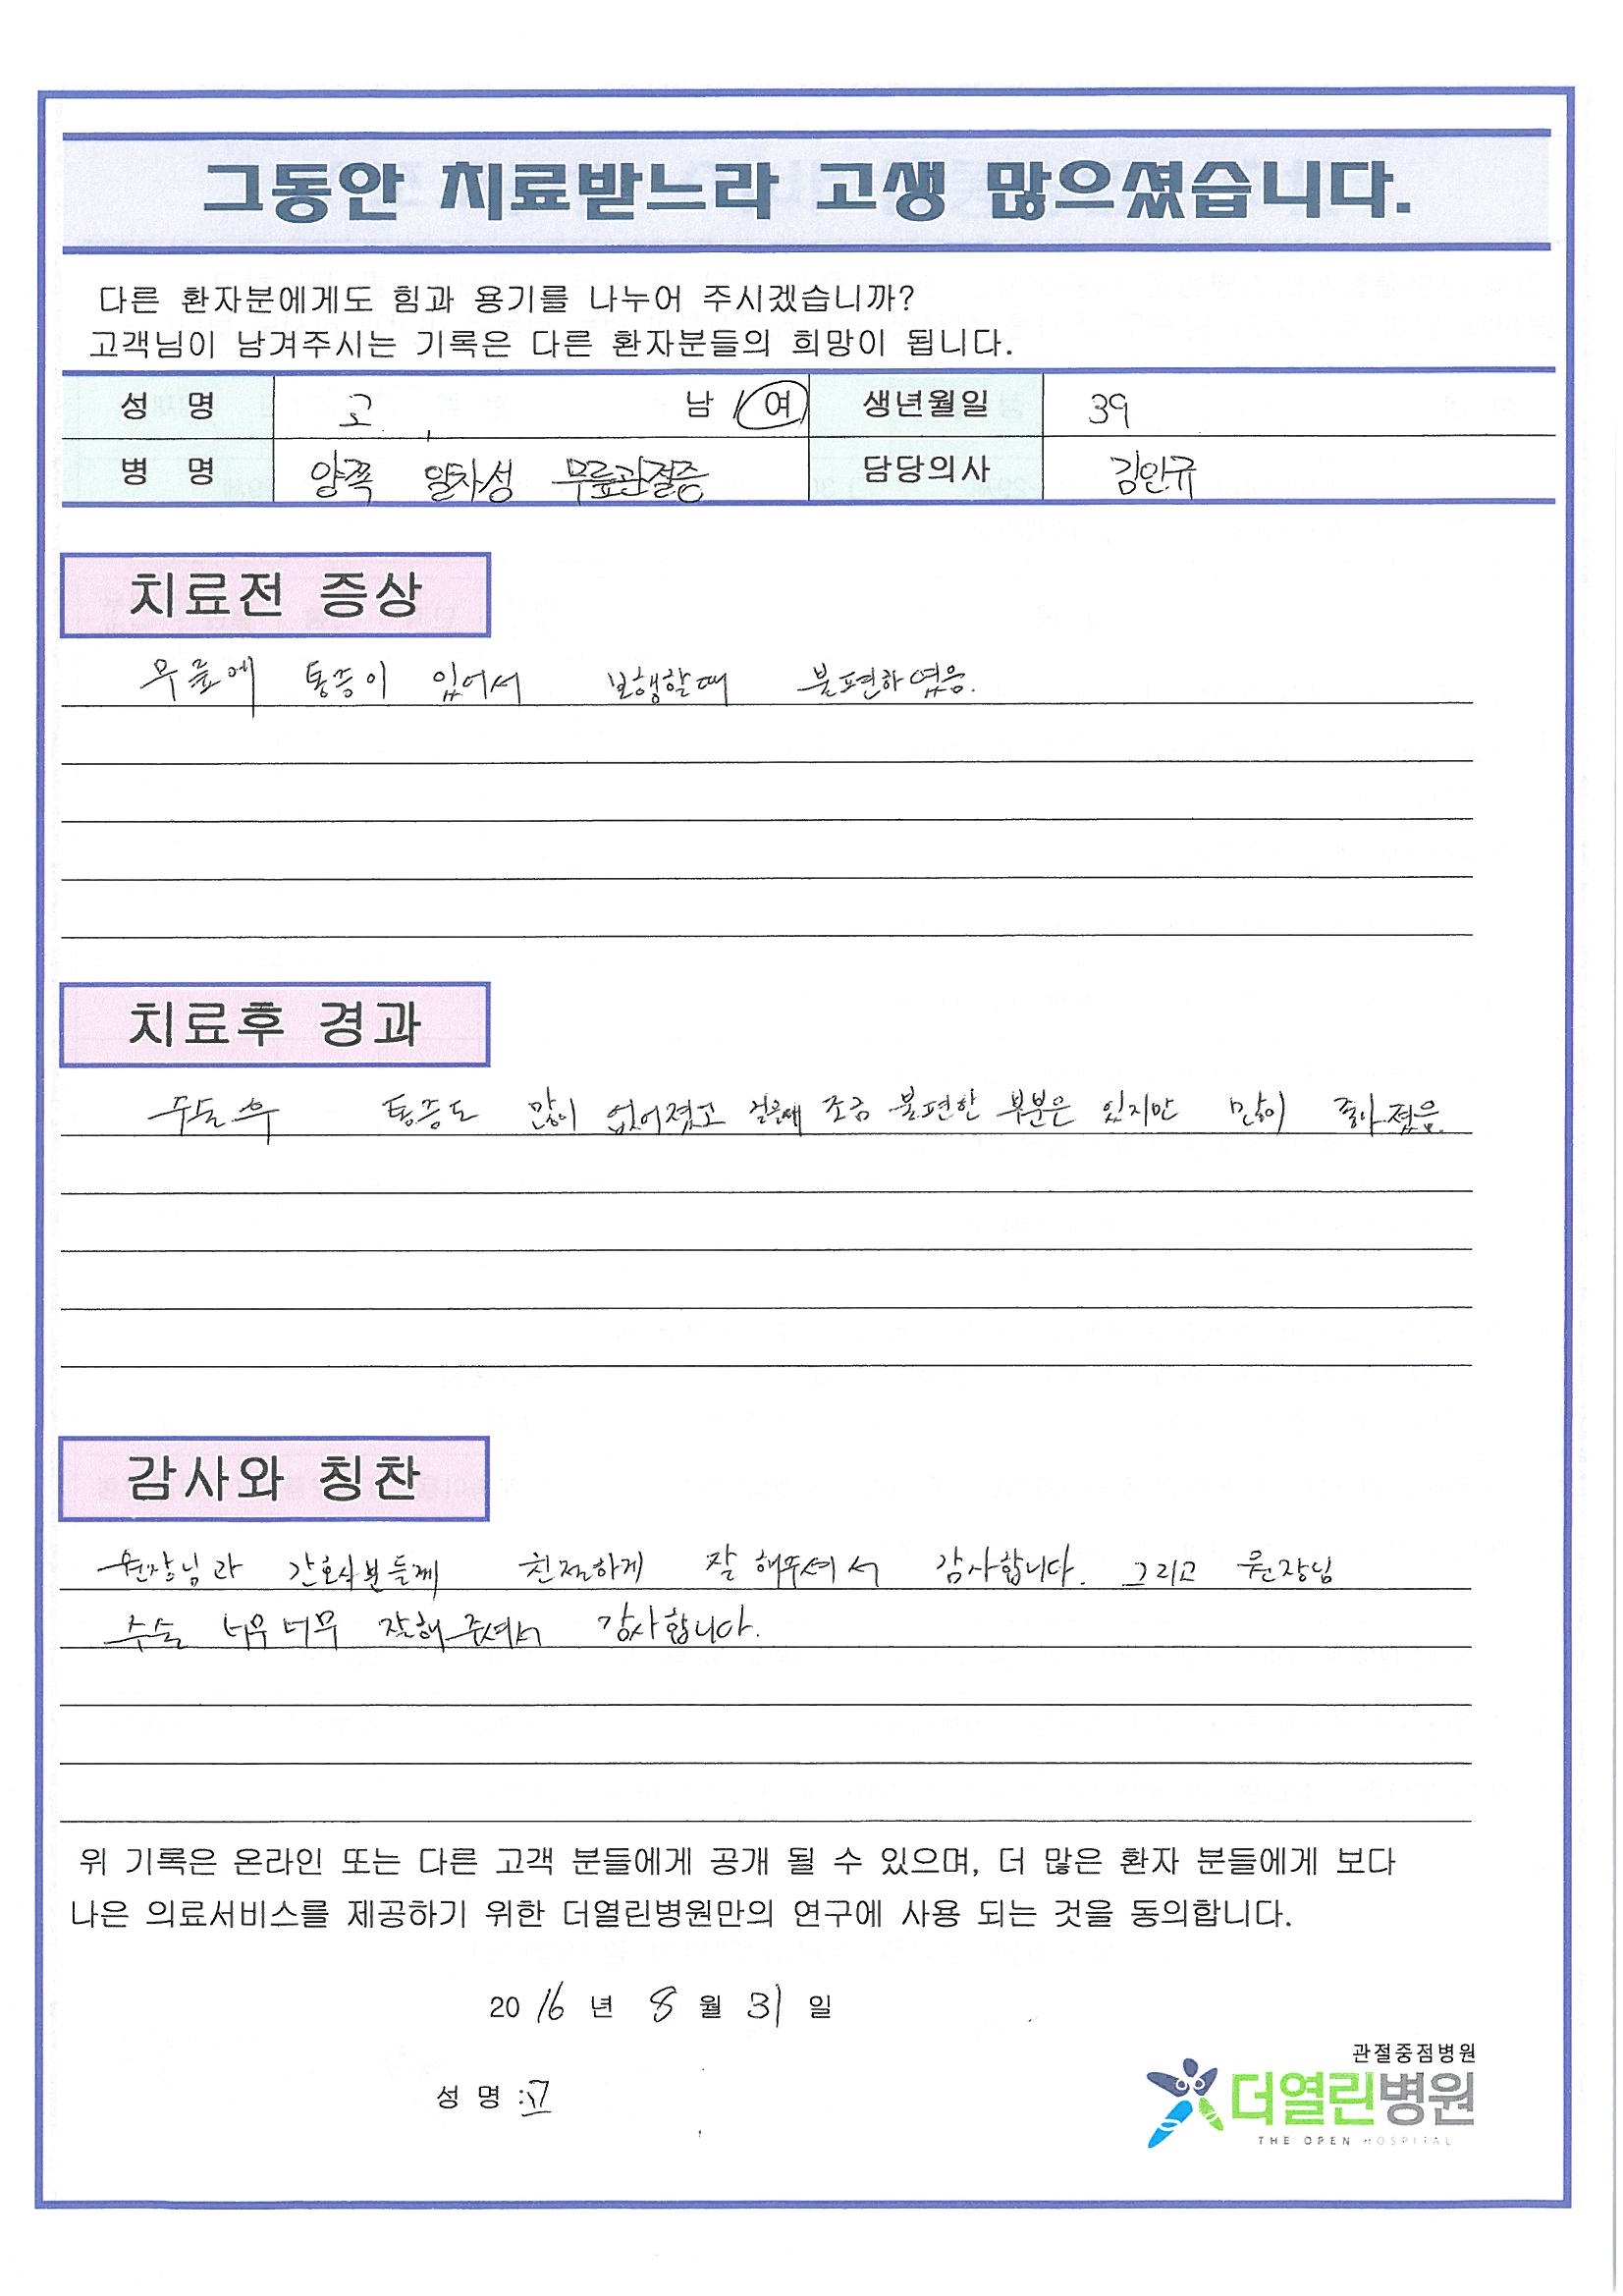 그동안 치료받느라 고생 많으셨습니다.
다른 환자분에게도 힘과 용기를 나누어 주시겠습니까?
고객님이 남겨주시는 기록은 다른 환자분들의 희망이 됩니다.
성 명 고 남 / 여 생년월일 39
병 명 양쪽 일차성 무릎관절증 담당의사 김인규
치료전 증상
무릎에 통증이 있어서 보행할때 불편하였음.
치료후 경과
수술후 통증도 많이 없어졌고 걸을때 조금 불편한 부분은 있지만 많이 좋아졌음.
감사와 칭찬
원장님과 간호사분들께 친절하게 잘 해주셔서 감사합니다. 그리고 원장님
수술 너무너무 잘해주셔서 감사합니다.
위 기록은 온라인 또는 다른 고객 분들에게 공개 될 수 있으며, 더 많은 환자 분들에게 보다
나은 의료서비스를 제공하기 위한 더열린병원만의 연구에 사용 되는 것을 동의합니다.
2016 년 8 월 31 일
성 명 : 고
관절중점병원
더열린병원
THE OPEN HOSPITAL